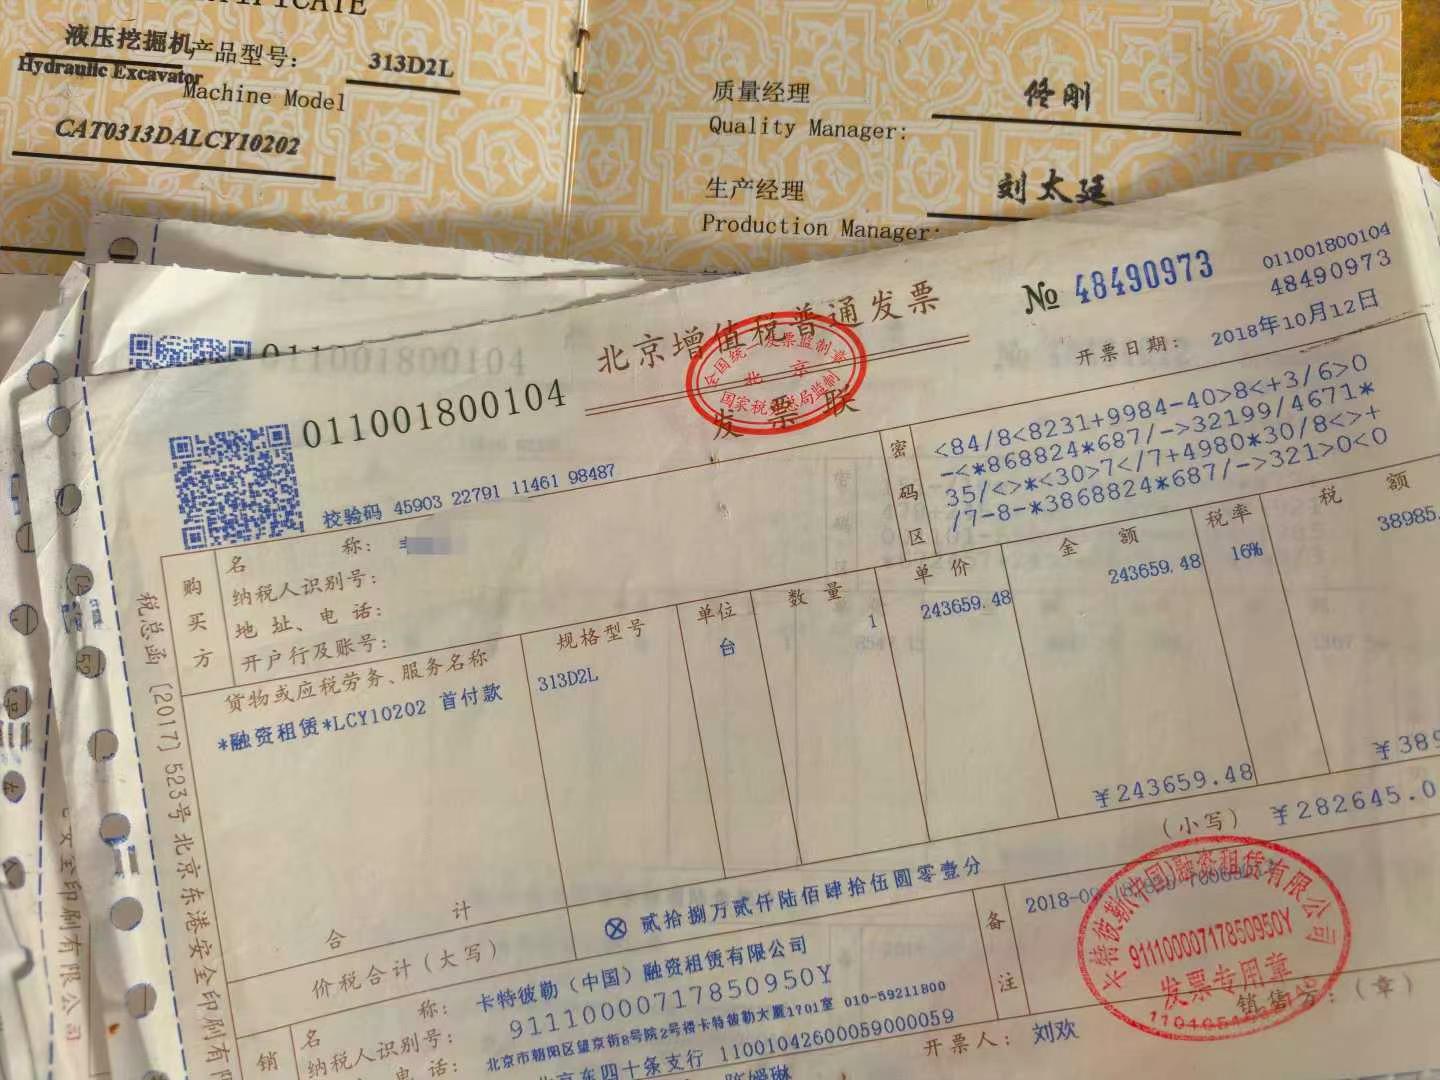 液压挖掘机 产品型号： 313D2L
Hydraulic Excavator Machine Model
CAT0313DALCY10202
质量经理
Quality Manager: 佟刚
生产经理 刘太廷
Production Manager:
011001800104
北京增值税普通发票
发票联
全国统一发票监制章
北京
国家税务总局监制
№ 48490973
011001800104
48490973
开票日期： 2018年10月12日
011001800104
校验码 45903 22791 11461 98487
购买方
名 称：
纳税人识别号：
地 址、电 话：
开户行及账号：
密码区
<84/8<8231+9984-40>8<+3/6>0
-<*868824*687/->32199/4671*
35/<>*<30>7</7+4980*30/8<>+
/7-8-*3868824*687/->321>0<0
货物或应税劳务、服务名称 规格型号 单位 数 量 单 价 金 额 税率 税 额
*融资租赁*LCY10202 首付款 313D2L 台 1 243659.48 243659.48 16% 38985.
合 计 ￥243659.48 ￥389
价税合计（大写） ⊗ 贰拾捌万贰仟陆佰肆拾伍圆零壹分 （小写） ￥282645.0
销
名 称： 卡特彼勒（中国）融资租赁有限公司
纳税人识别号： 91110000717850950Y
电 话： 北京市朝阳区望京街8号院2号楼卡特彼勒大厦1701室 010-59211800
北京东四十条支行 11001042600059000059
备注
2018-0
卡特彼勒(中国)融资租赁有限公司
91110000717850950Y
发票专用章
开票人： 刘欢
销售方：（章）
税总函〔2017〕523号北京东港安全印刷有限
安全印刷有限公司